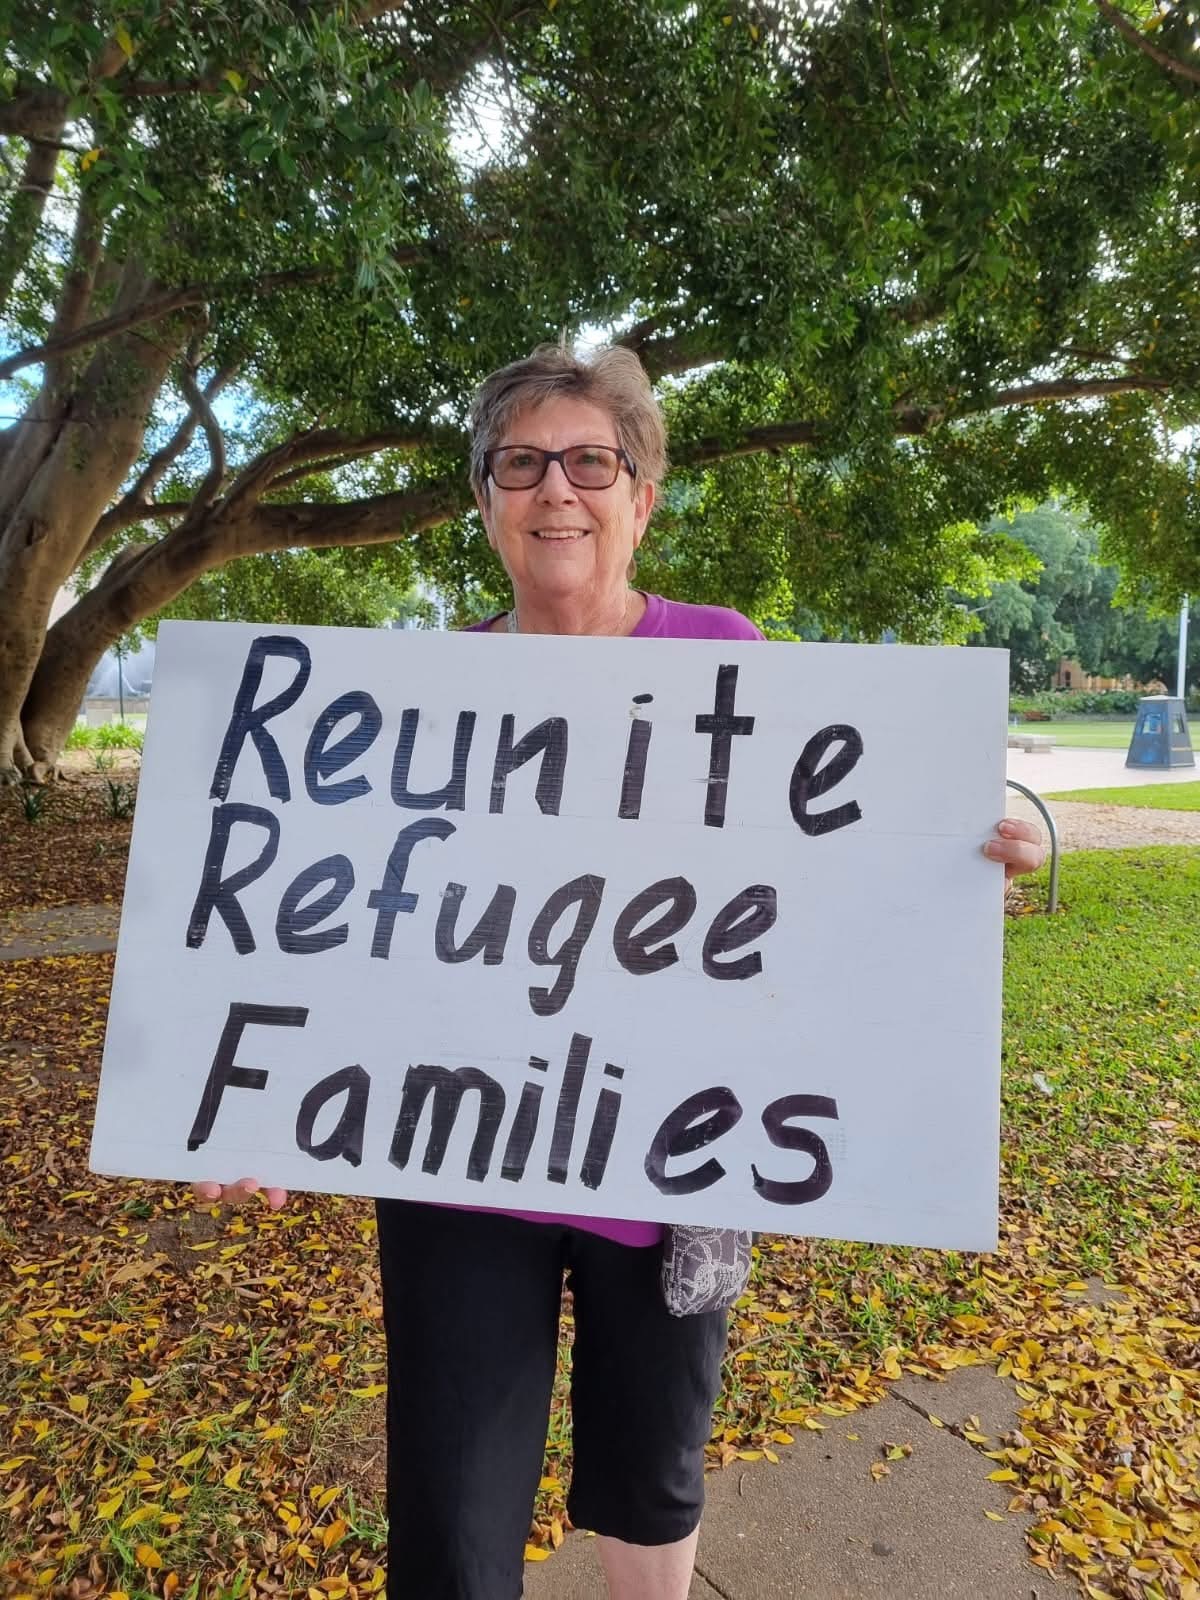 Reunite
Refugee
Families